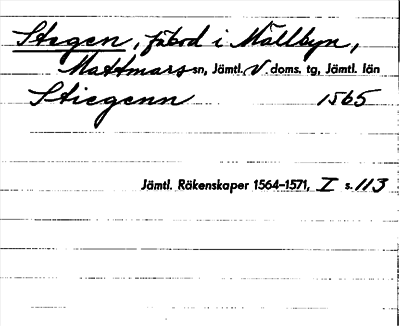 Stegen, fäbod i Mällbyn,
Mattmars sn, Jämtl. V doms. tg, Jämtl. län
Stiegenn 1565
Jämtl. Räkenskaper 1564–1571, I s. 113